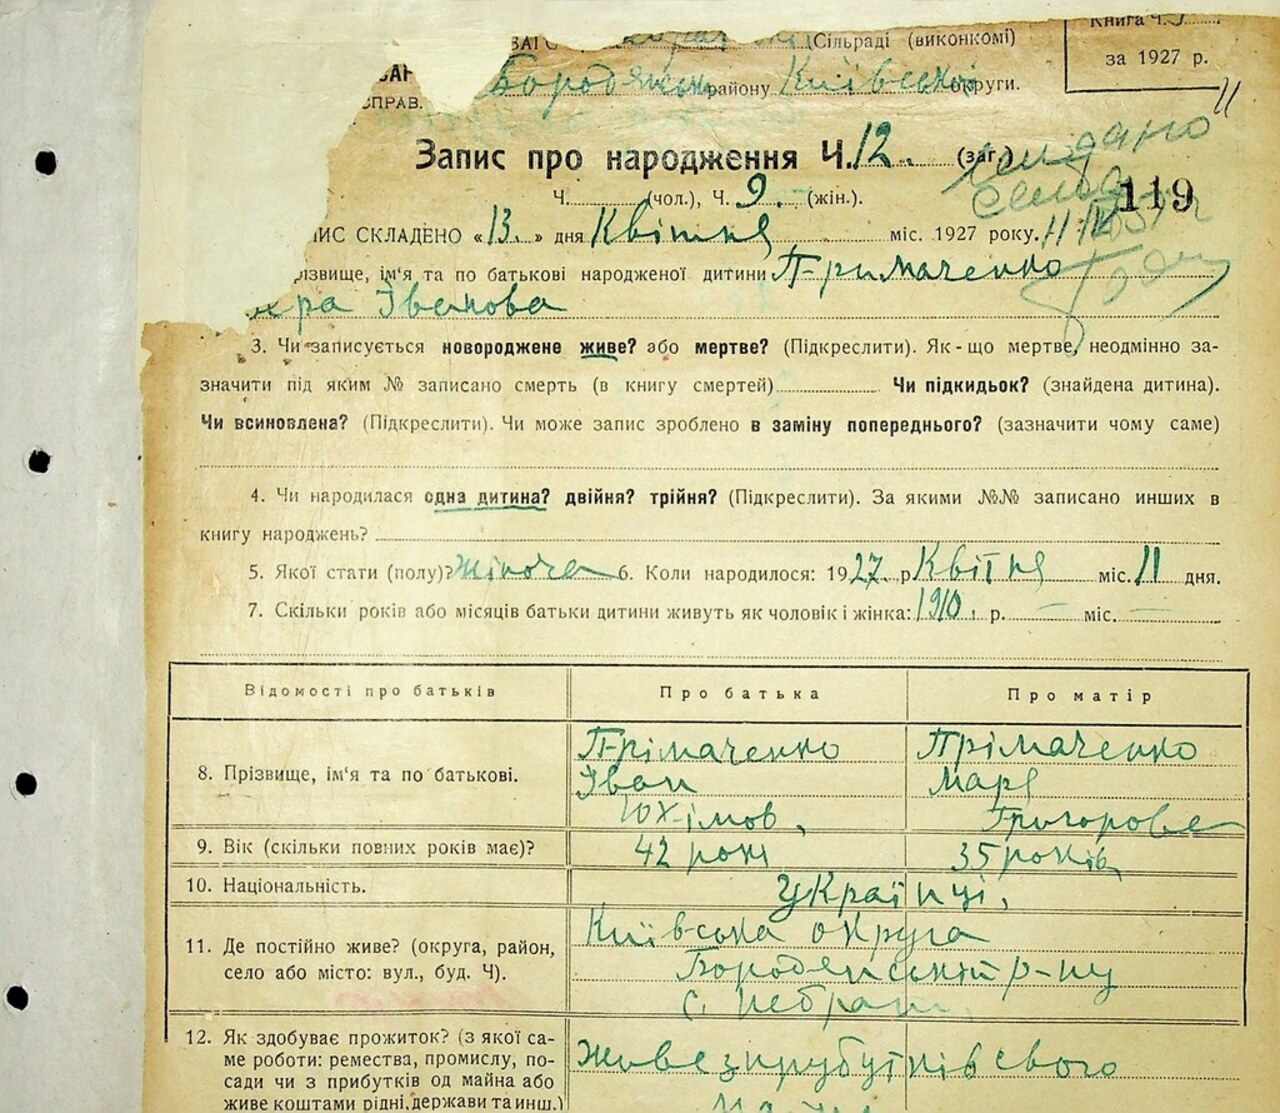 Книга Ч.
ВАГС Сільраді (виконкомі)
за 1927 р.
Бородянськ району Київської округи.
СПРАВ.
11
Запис про народження Ч. 12. (заг.)
119
Ч. (чол.), Ч. 9. (жін.).
ИС СКЛАДЕНО «13.» дня Квітня міс. 1927 року.
різвище, ім'я та по батькові народженої дитини Примаченко
Іванова
3. Чи записується новороджене живе? або мертве? (Підкреслити). Як-що мертве, неодмінно за-
значити під яким № записано смерть (в книгу смертей) Чи підкидьок? (знайдена дитина).
Чи всиновлена? (Підкреслити). Чи може запис зроблено в заміну попереднього? (зазначити чому саме)
4. Чи народилася одна дитина? двійня? трійня? (Підкреслити). За якими №№ записано инших в
книгу народжень?
5. Якої стати (полу)? жіноча 6. Коли народилося: 1927. р. Квітня міс. 11 дня.
7. Скільки років або місяців батьки дитини живуть як чоловік і жінка: 1910. р. — міс. —
Відомості про батьків Про батька Про матір
8. Прізвище, ім'я та по батькові. Прімаченко Іван Юхімов, Прімаченко Маря Григорове
9. Вік (скільки повних років має)? 42 рокі 35 років,
10. Національність. Українці.
11. Де постійно живе? (округа, район, Київська округа
село або місто: вул., буд. Ч). Бородянський р-ну
с. Небрат.
12. Як здобуває прожиток? (з якої са-
ме роботи: ремества, промислу, по- Живе з прубутків свого
сади чи з прибутків од майна або
живе коштами рідні, держави та инш.)